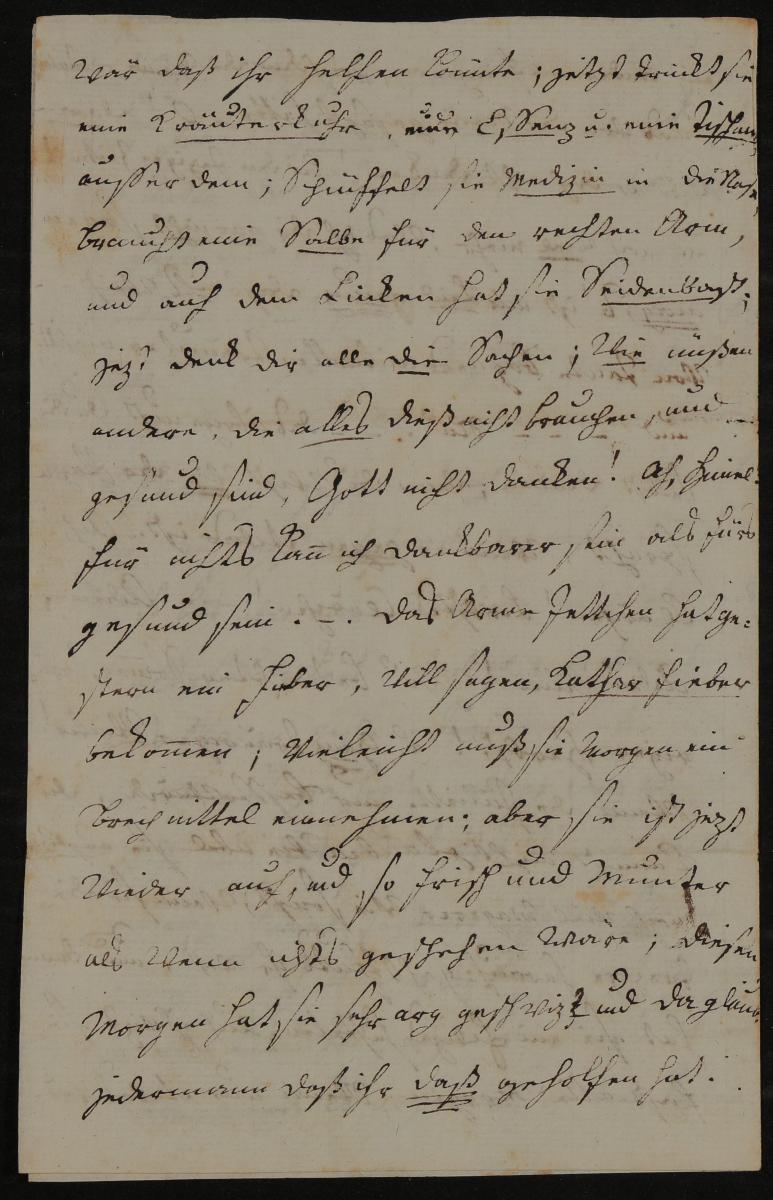 wär daß ihr helfen könnte; jetzt trinkt sie
eine Kräuterkuhr, eine Essenz u. eine Tisane,
ausser dem; Schnüffelt sie Medizin in die Nase,
braucht eine Salbe für den rechten Arm,
und auf dem Linken hat sie Seidenbast;
jezt denk dir alle die Sachen; Wie müßen
andere, die alles dieß nicht brauchen, und
gesund sind, Gott nicht danken! Ach, Himel!
für nichts kan ich dankbarer sein als fürs
gesund sein. -. Das Arme Jettchen hat ge=
stern ein Fieber, will sagen, Kathar fieber
bekomen; Vieleicht muß sie Morgen ein
Brechmittel einnehmen; aber sie ist jezt
wieder auf, und so frisch und Munter
als wenn nichts geschehen wäre; diesen
Morgen hat sie sehr arg geschwizt und da glaub
jedermann daß ihr daß geholfen hat.